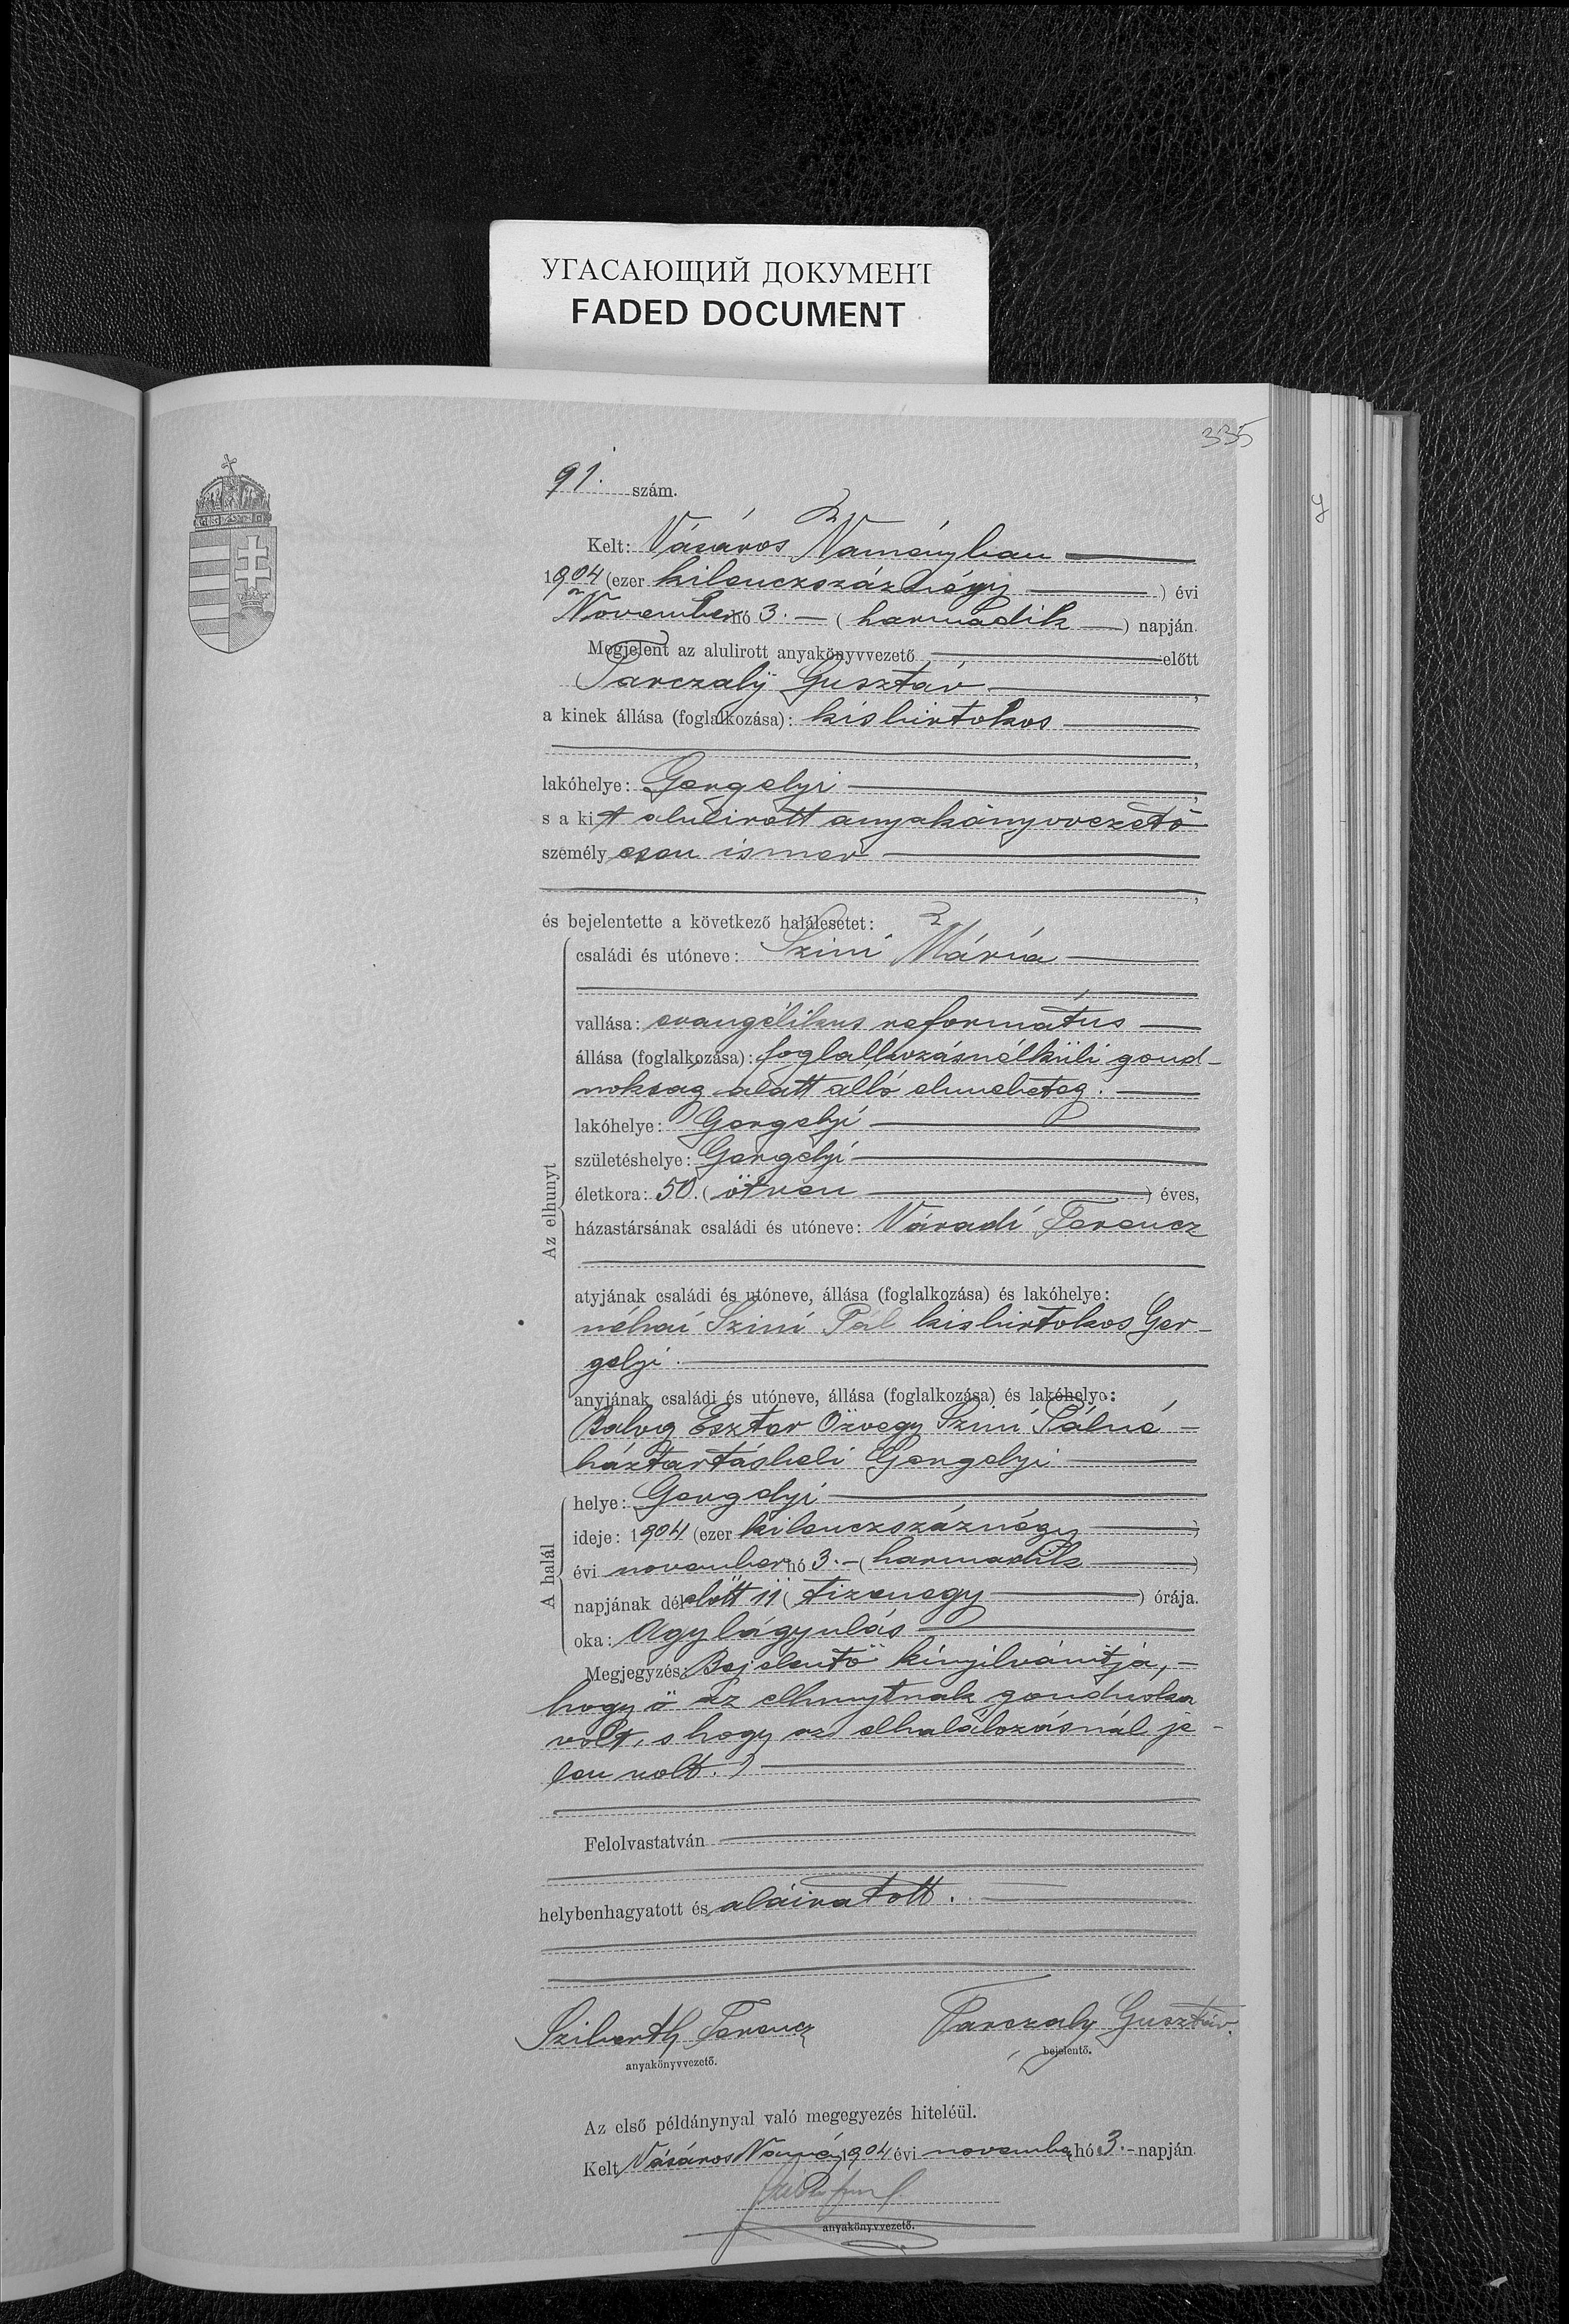 УГАСАЮЩИЙ ДОКУМЕНТ
FADED DOCUMENT
335
91. szám.
Kelt: Vásáros Naményban
1904 (ezer kilenczszáznégy) évi
November hó 3. (harmadik) napján.
Megjelent az alulirott anyakönyvvezető előtt
Tarczaly Gusztáv,
a kinek állása (foglalkozása): kisbirtokos
,
lakóhelye: Gergelyi,
s a kit alulirott anyakönyvvezető
személyesen ismer
,
és bejelentette a következő halálesetet:
családi és utóneve: Szini Mária
vallása: evangélikus református
állása (foglalkozása): foglalkozásnélküli gond-
nokság alatt álló elmebeteg.
lakóhelye: Gergelyi
születéshelye: Gergelyi
Az elhunyt
életkora: 50. (ötven) éves,
házastársának családi és utóneve: Váradi Ferencz
atyjának családi és utóneve, állása (foglalkozása) és lakóhelye:
néhai Szini Pál kisbirtokos Ger-
gelyi.
anyjának családi és utóneve, állása (foglalkozása) és lakóhelye:
Balog Eszter Özvegy Szini Pálné -
háztartásbeli Gergelyi
A halál
helye: Gergelyi
ideje: 1904 (ezer kilenczszáznégy)
évi november hó 3. - (harmadik)
napjának délelőtt 11 (tizenegy) órája.
oka: Agylágyulás
Megjegyzés: Bejelentő kinyilvánitja, -
hogy ő az elhunytnak gondnoka
volt, s hogy az elhalálozásnál je-
len volt.
Felolvastatván
helybenhagyatott és aláiratott.
Szilberth Ferencz
anyakönyvvezető.
Tarczaly Gusztáv.
bejelentő.
Az első példánynyal való megegyezés hiteléül.
Kelt Vásáros Namény 1904 évi november hó 3. - napján
anyakönyvvezető.